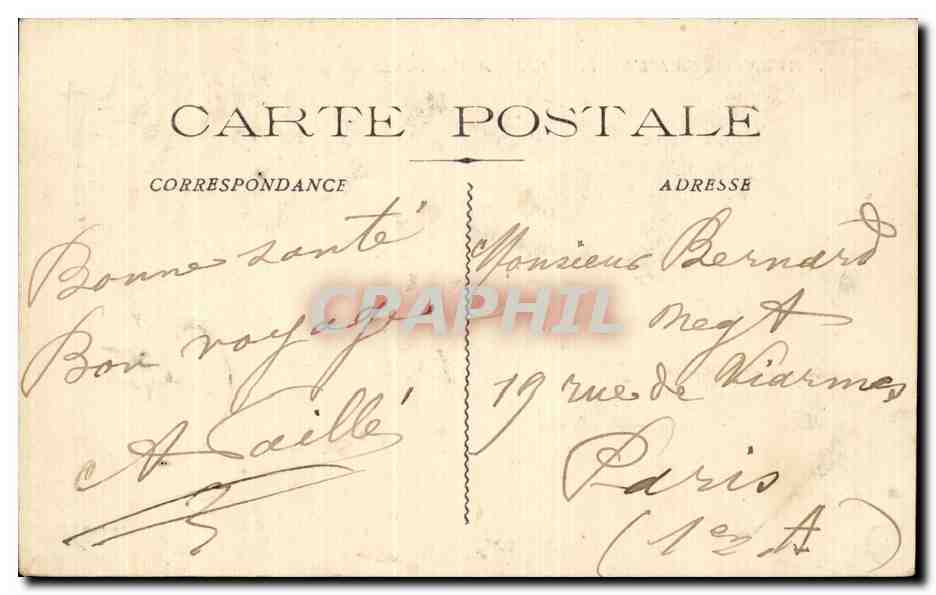 CARTE POSTALE
CORRESPONDANCE
Bonne santé
Bon voyage
A Caillé
ADRESSE
Monsieur Bernard
negt
19 rue de Viarmes
Paris
(1er At)
CPAPHIL